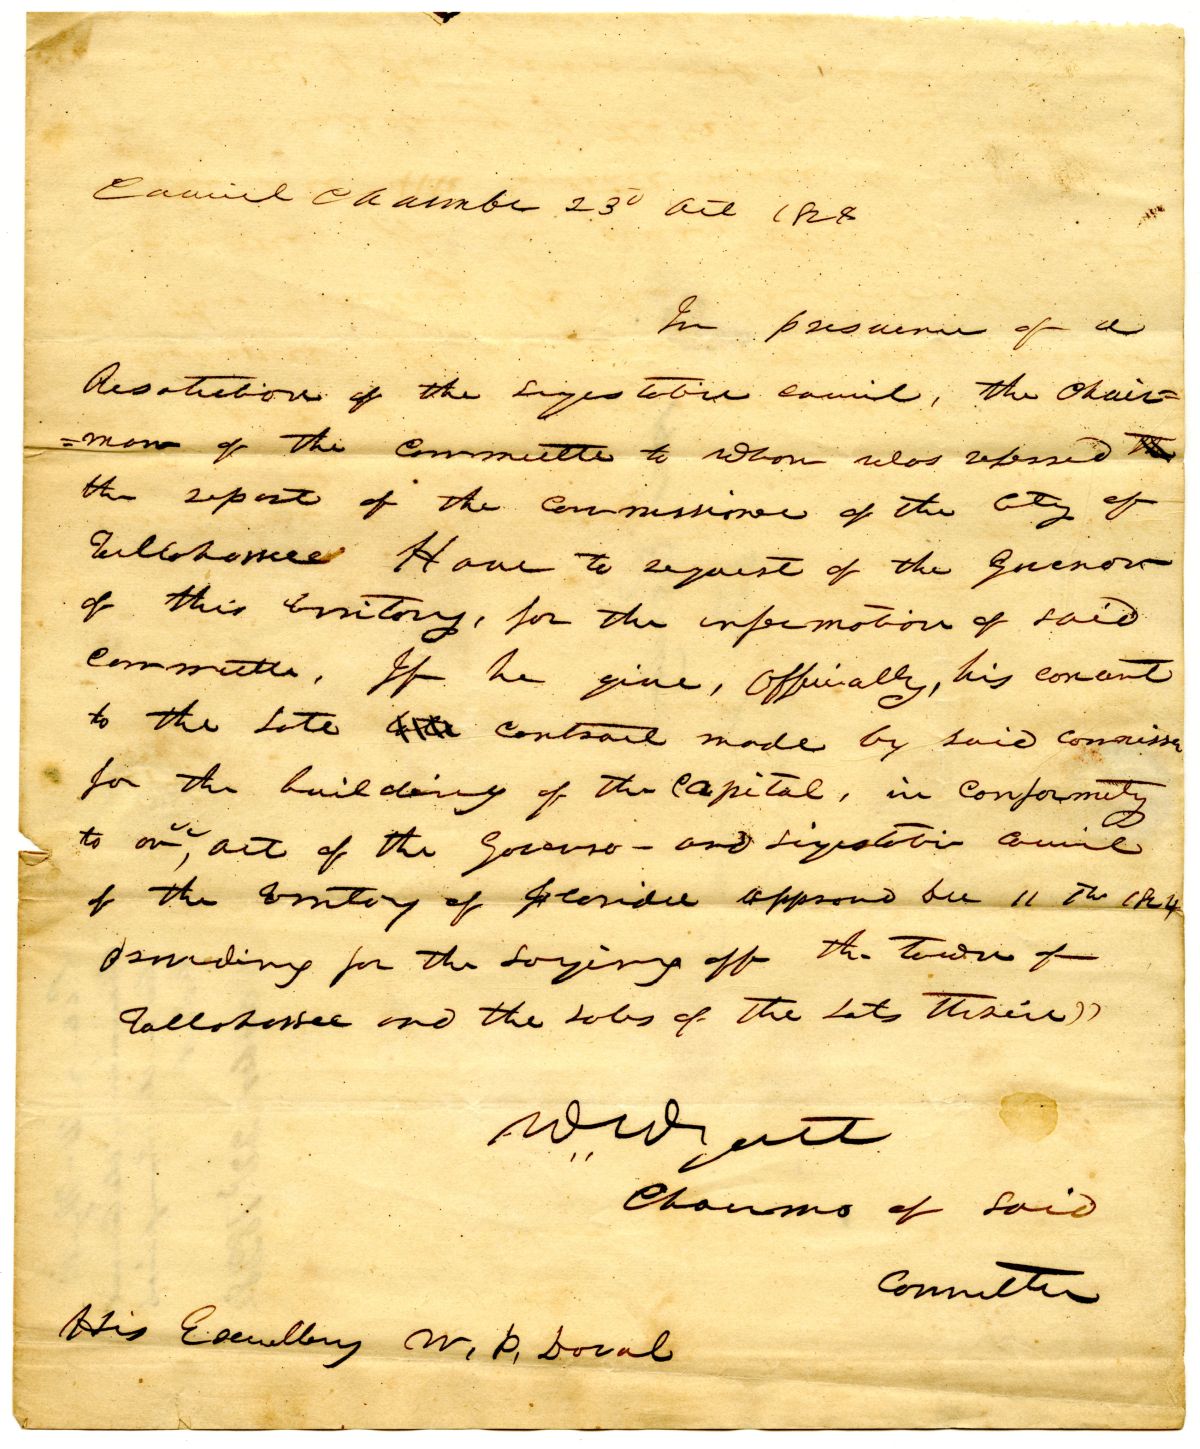 Council Chamber 23d Oct 1828
In presuence of a
Resolution of the Legestative Council, the Chair=
=man of the Committe to whom was referred
the report of the Commissioner of the City of
Tallahassee Have to request of the Guenor
of this Territory, for the information of said
Committe, If he give, Officially, his consent
to the Late contract made by said Commissr
for the building of the Capital, in Conformity
to an, act of the Govenor and Legestative Council
of the Territory of Florida approved Dec 11 Th 1824
providing for the Laying off the Town of
Tallahassee and the sales of the Lots Therein))
W. Wyatt
Chairman of Said
Committee
His Excellency W. P. Duval